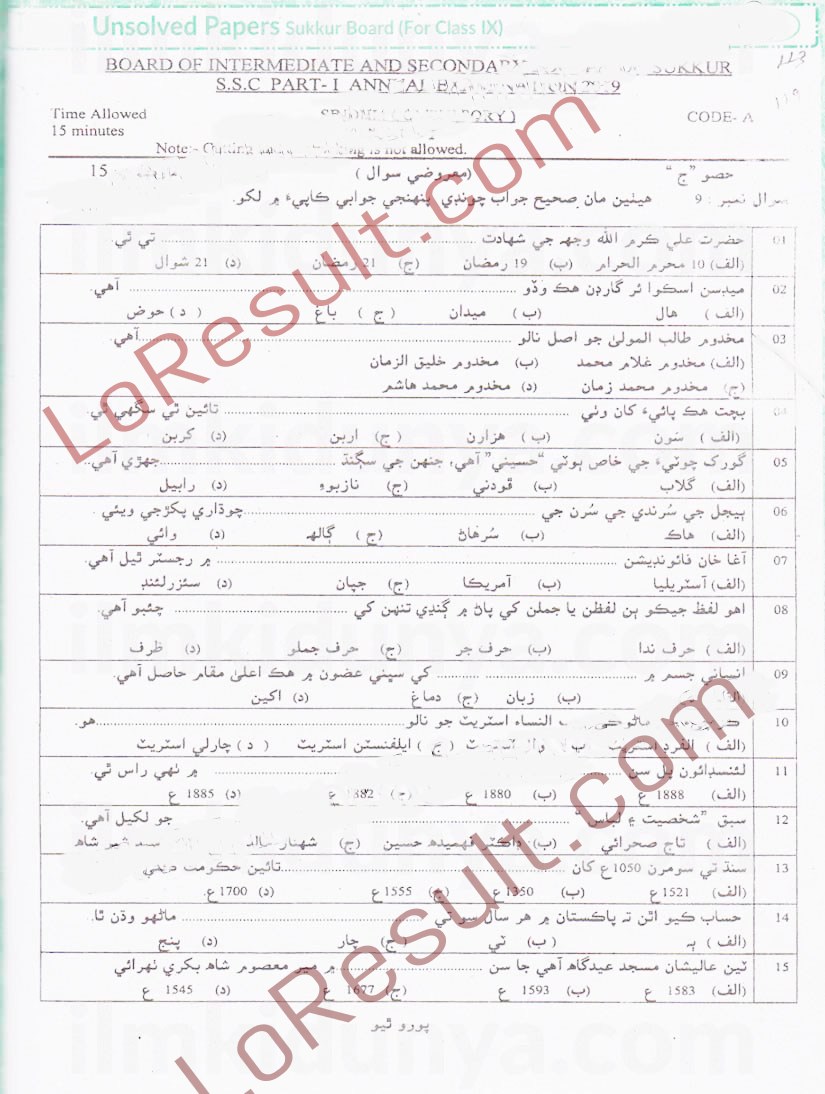 Unsolved Papers Sukkur Board (For Class IX)
BOARD OF INTERMEDIATE AND SECONDARY SUKKUR
S.S.C PART- I ANNUAL EXAMINATION 2019
Time Allowed CODE- A
15 minutes
Note:- is not allowed.
حصو ”ج“ (معروضي سوال) 15
سوال نمبر : 9 هيٺين مان صحيح جواب چونڊي پنهنجي جوابي ڪاپيءَ ۾ لکو.
01 حضرت علي ڪرم الله وجهہ جي شهادت .................... تي ٿي.
(الف) 10 محرم الحرام (ب) 19 رمضان (ج) 21 رمضان (د) 21 شوال
02 ميڊسن اسڪوائر گارڊن هڪ وڏو .................... آهي.
(الف) هال (ب) ميدان (ج) باغ (د) حوض
03 مخدوم طالب المولىٰ جو اصل نالو ....................آهي.
(الف) مخدوم غلام محمد (ب) مخدوم خليق الزمان
(ج) مخدوم محمد زمان (د) مخدوم محمد هاشم
04 بچت هڪ پائيءَ کان وٺي .................... تائين ٿي سگهي ٿي.
(الف) سَون (ب) هزارن (ج) اربن (د) کربن
05 گورک چوٽيءَ جي خاص ٻوٽي ”حسيني“ آهي، جنهن جي سڳنڌ ....................جهڙي آهي.
(الف) گلاب (ب) ڦودني (ج) نازبوءِ (د) رابيل
06 ٻيجل جي سُرندي جي سُرن جي ....................چوڌاري پکڙجي ويئي.
(الف) هاڪ (ب) سُرهاڻ (ج) ڳالهہ (د) وائي
07 آغا خان فائونڊيشن .................... ۾ رجسٽر ٿيل آهي.
(الف) آسٽريليا (ب) آمريڪا (ج) جپان (د) سئزرلئنڊ
08 اهو لفظ جيڪو ٻن لفظن يا جملن کي پاڻ ۾ ڳنڍي تنهن کي .................... چئبو آهي.
(الف) حرف ندا (ب) حرف جر (ج) حرف جملو (د) ظرف
09 انساني جسم ۾ .................... کي سڀني عضون ۾ هڪ اعلىٰ مقام حاصل آهي.
(ب) زبان (ج) دماغ (د) اکين
10 النساء اسٽريٽ جو نالو ....................هو.
(الف) الفرڊ اسٽريٽ (ب) (ج) ايلفنسٽن اسٽريٽ (د) چارلي اسٽريٽ
11 لئنسڊائون پل سن .................... ۾ ٺهي راس ٿي.
(الف) 1888 ع (ب) 1880 ع (ج) 1882 ع (د) 1885 ع
12 سبق ”شخصيت ۽ لباس“ .................... جو لکيل آهي.
(الف) تاج صحرائي (ب) ڊاڪٽر فهميده حسين (ج) شهناز (د)
13 سنڌ تي سومرن 1050ع کان ....................تائين حڪومت
(الف) 1521ع (ب) 1350ع (ج) 1555ع (د) 1700ع.
14 حساب ڪيو اٿن تہ پاڪستان ۾ هر سال سو تي .................... ماڻهو وڌن ٿا.
(الف) ٻہ (ب) ٽي (ج) چار (د) پنج
15 ٽين عاليشان مسجد عيدگاھ آهي جا سن .................... ۾ مير معصوم شاھ بکري ٺهرائي
(الف) 1583 ع (ب) 1593 ع (ج) 1677 ع (د) 1545 ع
پورو ٿيو
LoResult.com
LoResult.com
ilmkidunya.com